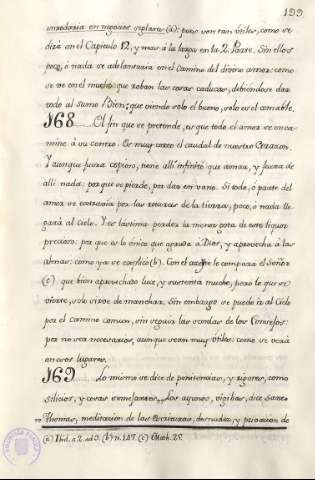 199
enredarse en negocios seglares (a): pues son tan útiles, como se
dirá en el Capitulo 12, y mas à la larga en la 2. Parte. Sin ellos
poco, ò nada se adelantara en el Camino del divino amor: como
se ve en el mucho que roban las cosas caducas, debiendose dar
todo al sumo Bien; que siendo solo el bueno, solo es el amable.
168 El fin que se pretende, es que todo el amor se enca-
mine à su centro. Es muy corto el caudal de nuestro Corazon.
Y aunque fuera copioso, tiene alli infinito que amar, y fuera de
alli nada: porque se pierde, por dar en vano. Si todo, ò parte del
amor se extravia por las criaturas de la tierra, poco, ò nada lle-
gará al Cielo. Y es lastima perder la menor gota de este liquor
precioso: por que es lo único que agrada à Dios, y aprovecha à las
almas: como ya se explicó (b). Con el aceyte le compara el Señor
(c): que bien aprovechado luce, y sustenta mucho; pero lo que se
vierte, solo sirve de manchar. Sin embargo se puede ir al Cielo
por el camino comun, sin seguir las sendas de los Consejos:
por no ser necesarios, aunque sean muy útiles: como se verá
en esos lugares.
169 Lo mismo se dice de penitencias, y rigores, como
silicios, y cosas semejantes. Los ayunos, vigilias, dice Santo
Thomas, meditacion de las Escrituras, desnudez, y privacion de
(a) Ibid. a 2. ad 3. (b) n. 127. (c) Math. 25.